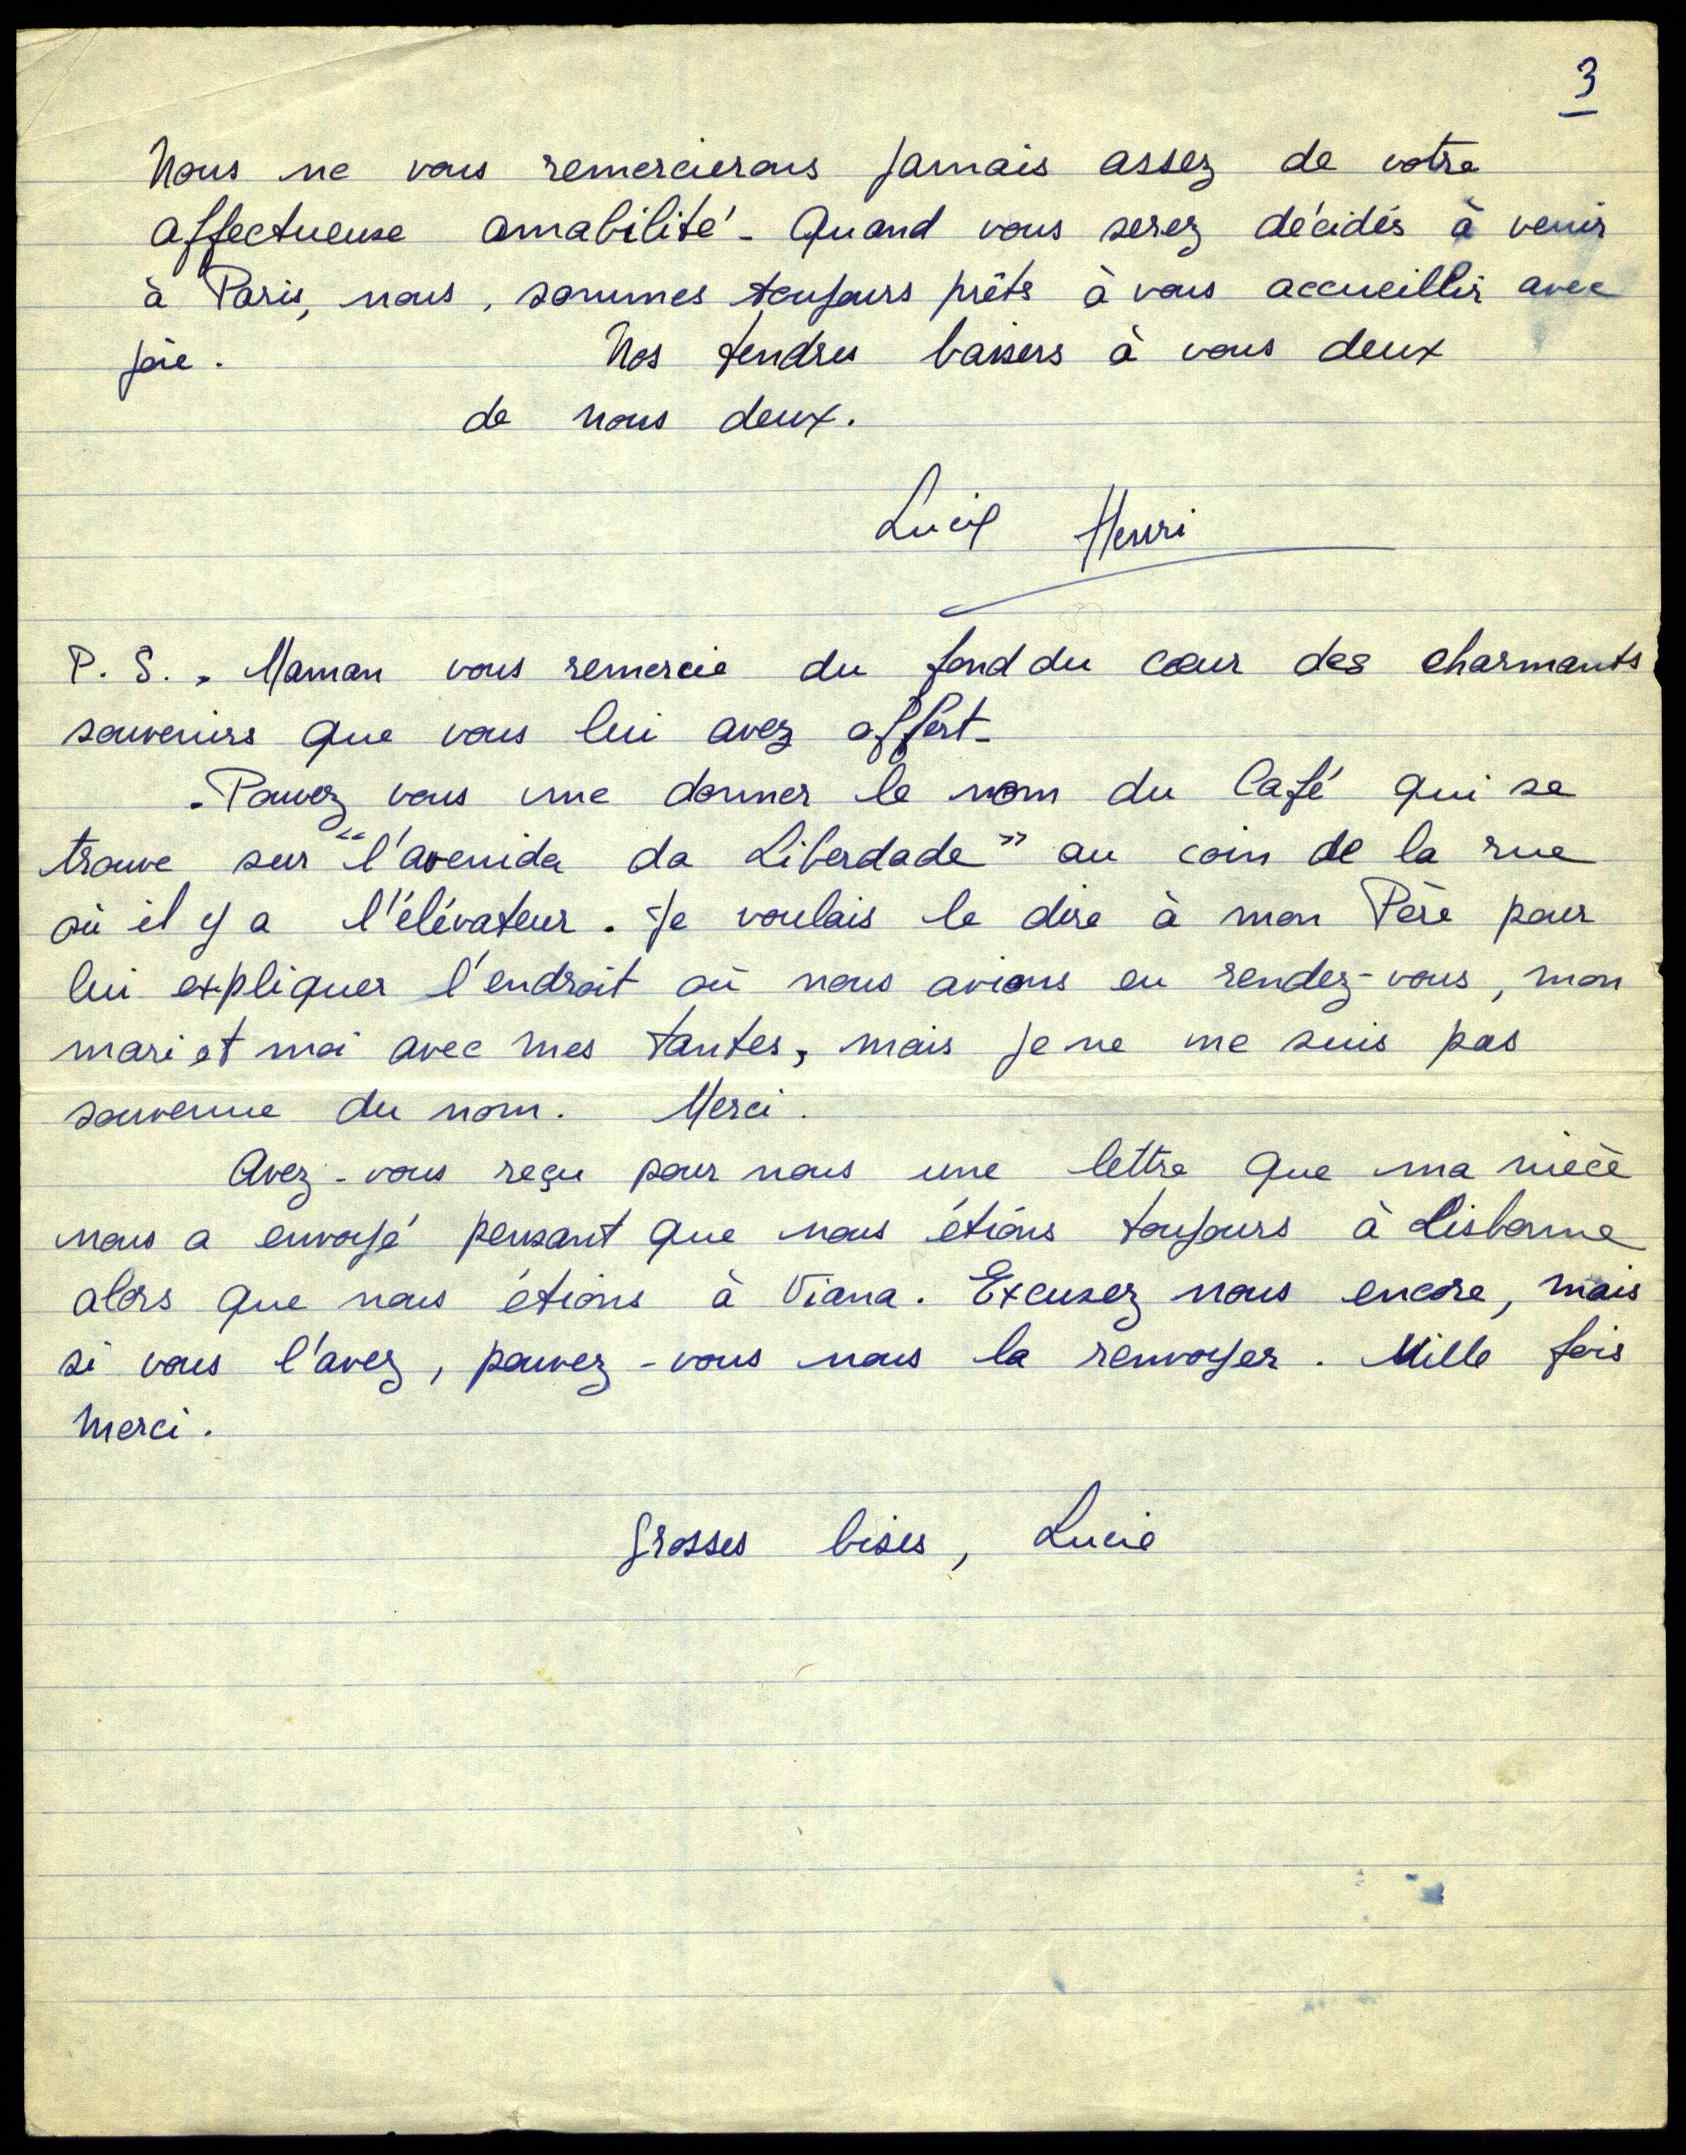 3
Nous ne vous remercierons jamais assez de votre
affectueuse amabilité - Quand vous serez décidés à venir
à Paris, nous, sommes toujours prêts à vous accueillir avec
joie. Nos tendres baisers à vous deux
de nous deux.
Lucie Henri
P. S. . Maman vous remercie du fond du cœur des charmants
souvenirs que vous lui avez offert -
. Pouvez vous me donner le nom du Café qui se
trouve sur "l'avenida da Liberdade" au coin de la rue
où il y a l'élévateur. Je voulais le dire à mon Père pour
lui expliquer l'endroit où nous avions eu rendez-vous, mon
mari et moi avec mes tantes, mais je ne me suis pas
souvenue du nom. Merci.
Avez-vous reçu pour nous une lettre que ma nièce
nous a envoyé pensant que nous étions toujours à Lisbonne
alors que nous étions à Viana. Excusez nous encore, mais
si vous l'avez, pouvez-vous nous la renvoyer. Mille fois
merci.
Grosses bises, Lucie